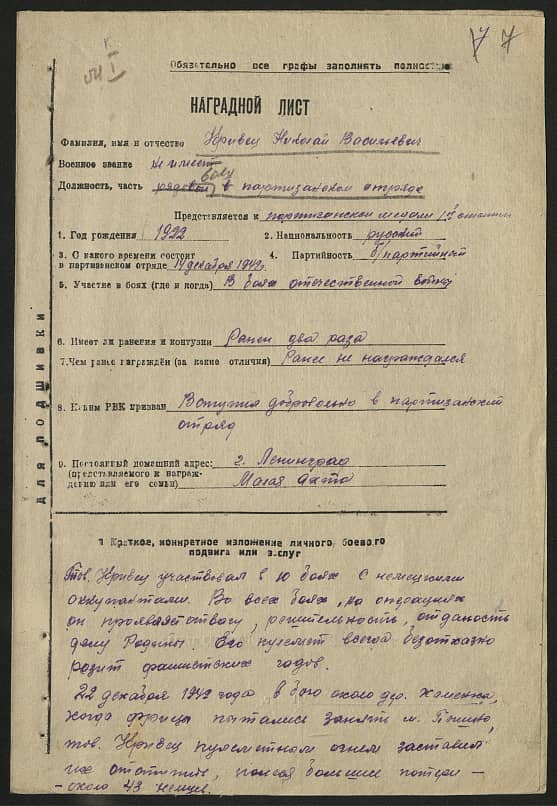 7 7
Обязательно все графы заполнять полностью
НАГРАДНОЙ ЛИСТ
Фамилия, имя и отчество Кривец Николай Васильевич
Военное звание не имеет
Должность, часть рядовой в партизанском отряде
Представляется к партизанской медали 1й степени
1. Год рождения 1922 2. Национальность русский
3. С какого времени состоит в партизанском отряде 14 декабря 1942г. 4. Партийность б/партийный
5. Участие в боях (где и когда) В боях отечественной войны
6. Имеет ли ранения и контузии Ранен два раза
7. Чем ранее награждён (за какие отличия) Ранее не награждался
8. Каким РВК призван Вступил добровольно в партизанский
отряд
9. Постоянный домашний адрес: г. Ленинград
(представляемого к награждению или его семьи) Малая Охта
ДЛЯ ПОДШИВКИ
1 Краткое, конкретное изложение личного боевого
подвига или заслуг
Тов. Кривец участвовал в 10 боях с немецкими
оккупантами. Во всех боях, на операциях
он проявляет отвагу, решительность, отданость
делу Родины. Его пулемет всегда безотказно
разит фашистских гадов.
22 декабря 1942 года в бою около дер.
когда фрицы пытались занять м.
тов. Кривец пулеметным огнем заставил
их отступить, понеся большие потери –
– около 43 немцев.